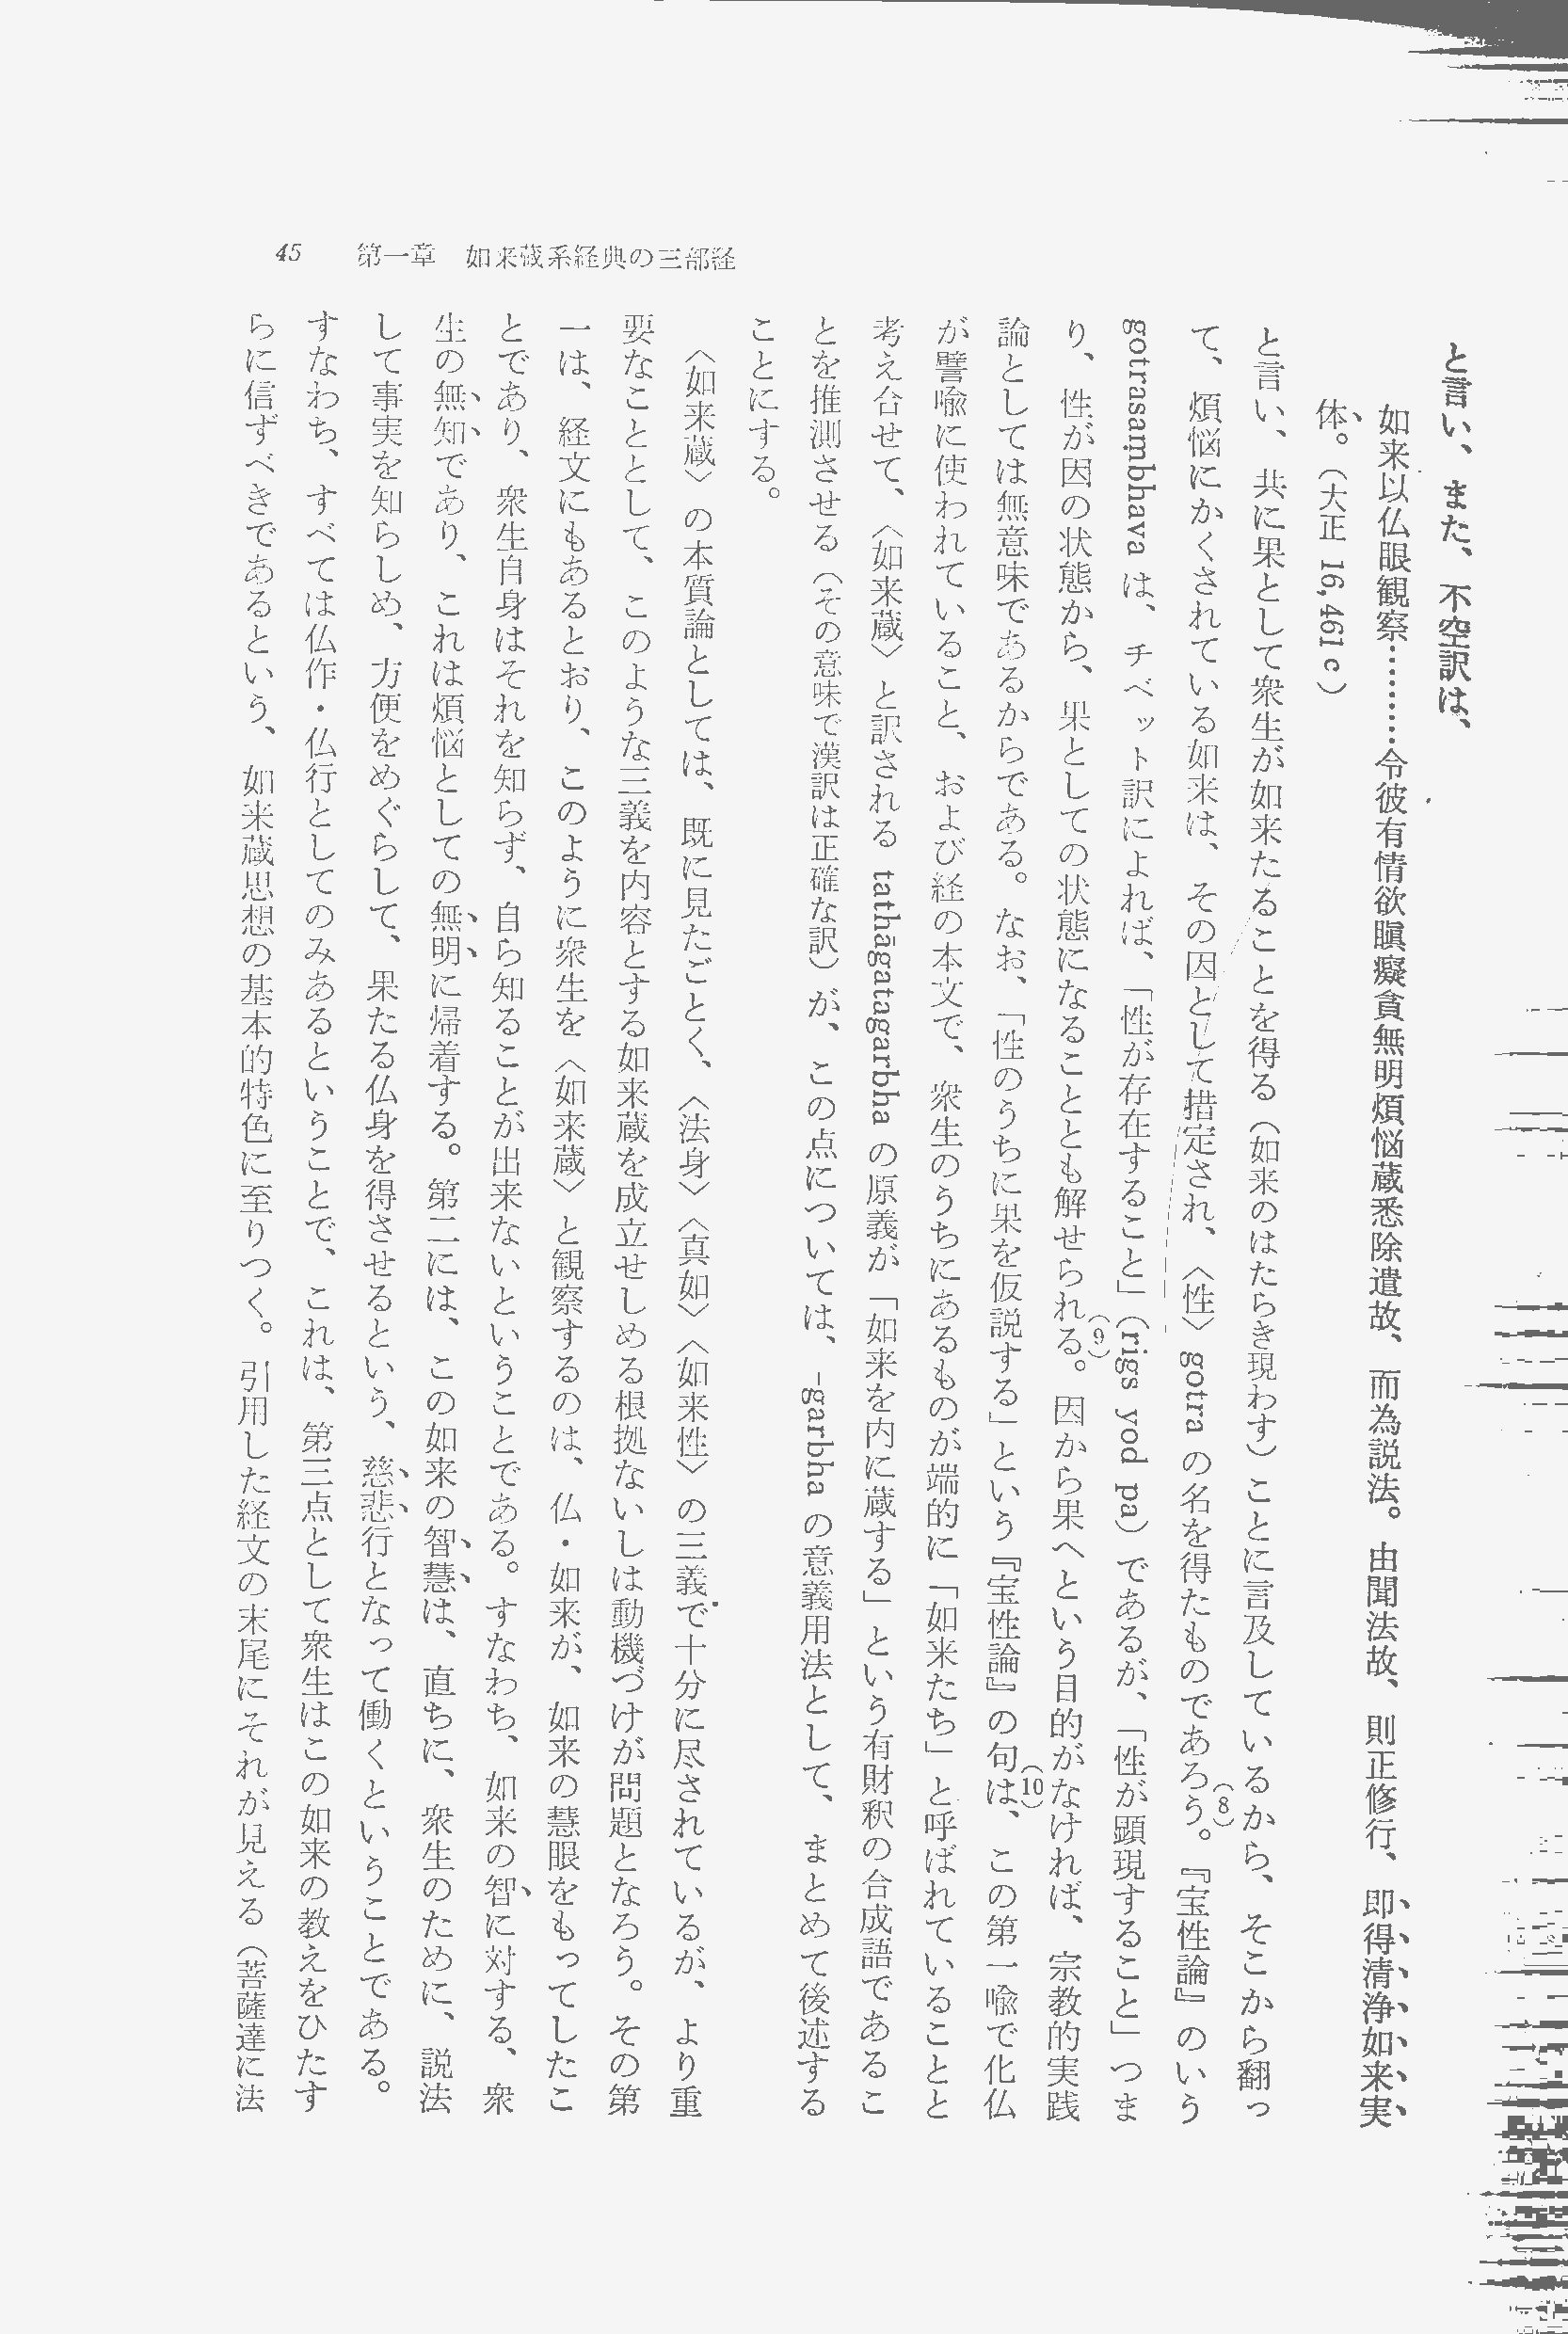 45　第一章　如来蔵系経典の三部経
と言い、また、不空訳は、
如来以仏眼観察………令彼有情欲瞋癡貪無明煩悩蔵悉除遣故、而為説法。由聞法故、則正修行、即得清浄如来実
体。（大正 16, 461 c）
と言い、共に果として衆生が如来たることを得る（如来のはたらき現わす）ことに言及しているから、そこから翻っ
て、煩悩にかくされている如来は、その因として措定され、〈性〉gotra の名を得たものであろう。(8)『宝性論』のいう
gotrasaṃbhava は、チベット訳によれば、「性が存在すること」（rigs yod pa）であるが、「性が顕現すること」つま
り、性が因の状態から、果としての状態になることとも解せられる。(9)因から果へという目的がなければ、宗教的実践
論としては無意味であるからである。なお、「性のうちに果を仮説する」という『宝性論』の句は、(10)この第一喩で化仏
が譬喩に使われていること、および経の本文で、衆生のうちにあるものが端的に「如来たち」と呼ばれていることと
考え合せて、〈如来蔵〉と訳される tathāgatagarbha の原義が「如来を内に蔵する」という有財釈の合成語であるこ
とを推測させる（その意味で漢訳は正確な訳）が、この点については、-garbha の意義用法として、まとめて後述する
ことにする。
〈如来蔵〉の本質論としては、既に見たごとく、〈法身〉〈真如〉〈如来性〉の三義で十分に尽されているが、より重
要なこととして、このような三義を内容とする如来蔵を成立せしめる根拠ないしは動機づけが問題となろう。その第
一は、経文にもあるとおり、このように衆生を〈如来蔵〉と観察するのは、仏・如来が、如来の慧眼をもってしたこ
とであり、衆生自身はそれを知らず、自ら知ることが出来ないということである。すなわち、如来の智に対する、衆
生の無知であり、これは煩悩としての無明に帰着する。第二には、この如来の智慧は、直ちに、衆生のために、説法
して事実を知らしめ、方便をめぐらして、果たる仏身を得させるという、慈悲行となって働くということである。
すなわち、すべては仏作・仏行としてのみあるということで、これは、第三点として衆生はこの如来の教えをひたす
らに信ずべきであるという、如来蔵思想の基本的特色に至りつく。引用した経文の末尾にそれが見える（菩薩達に法